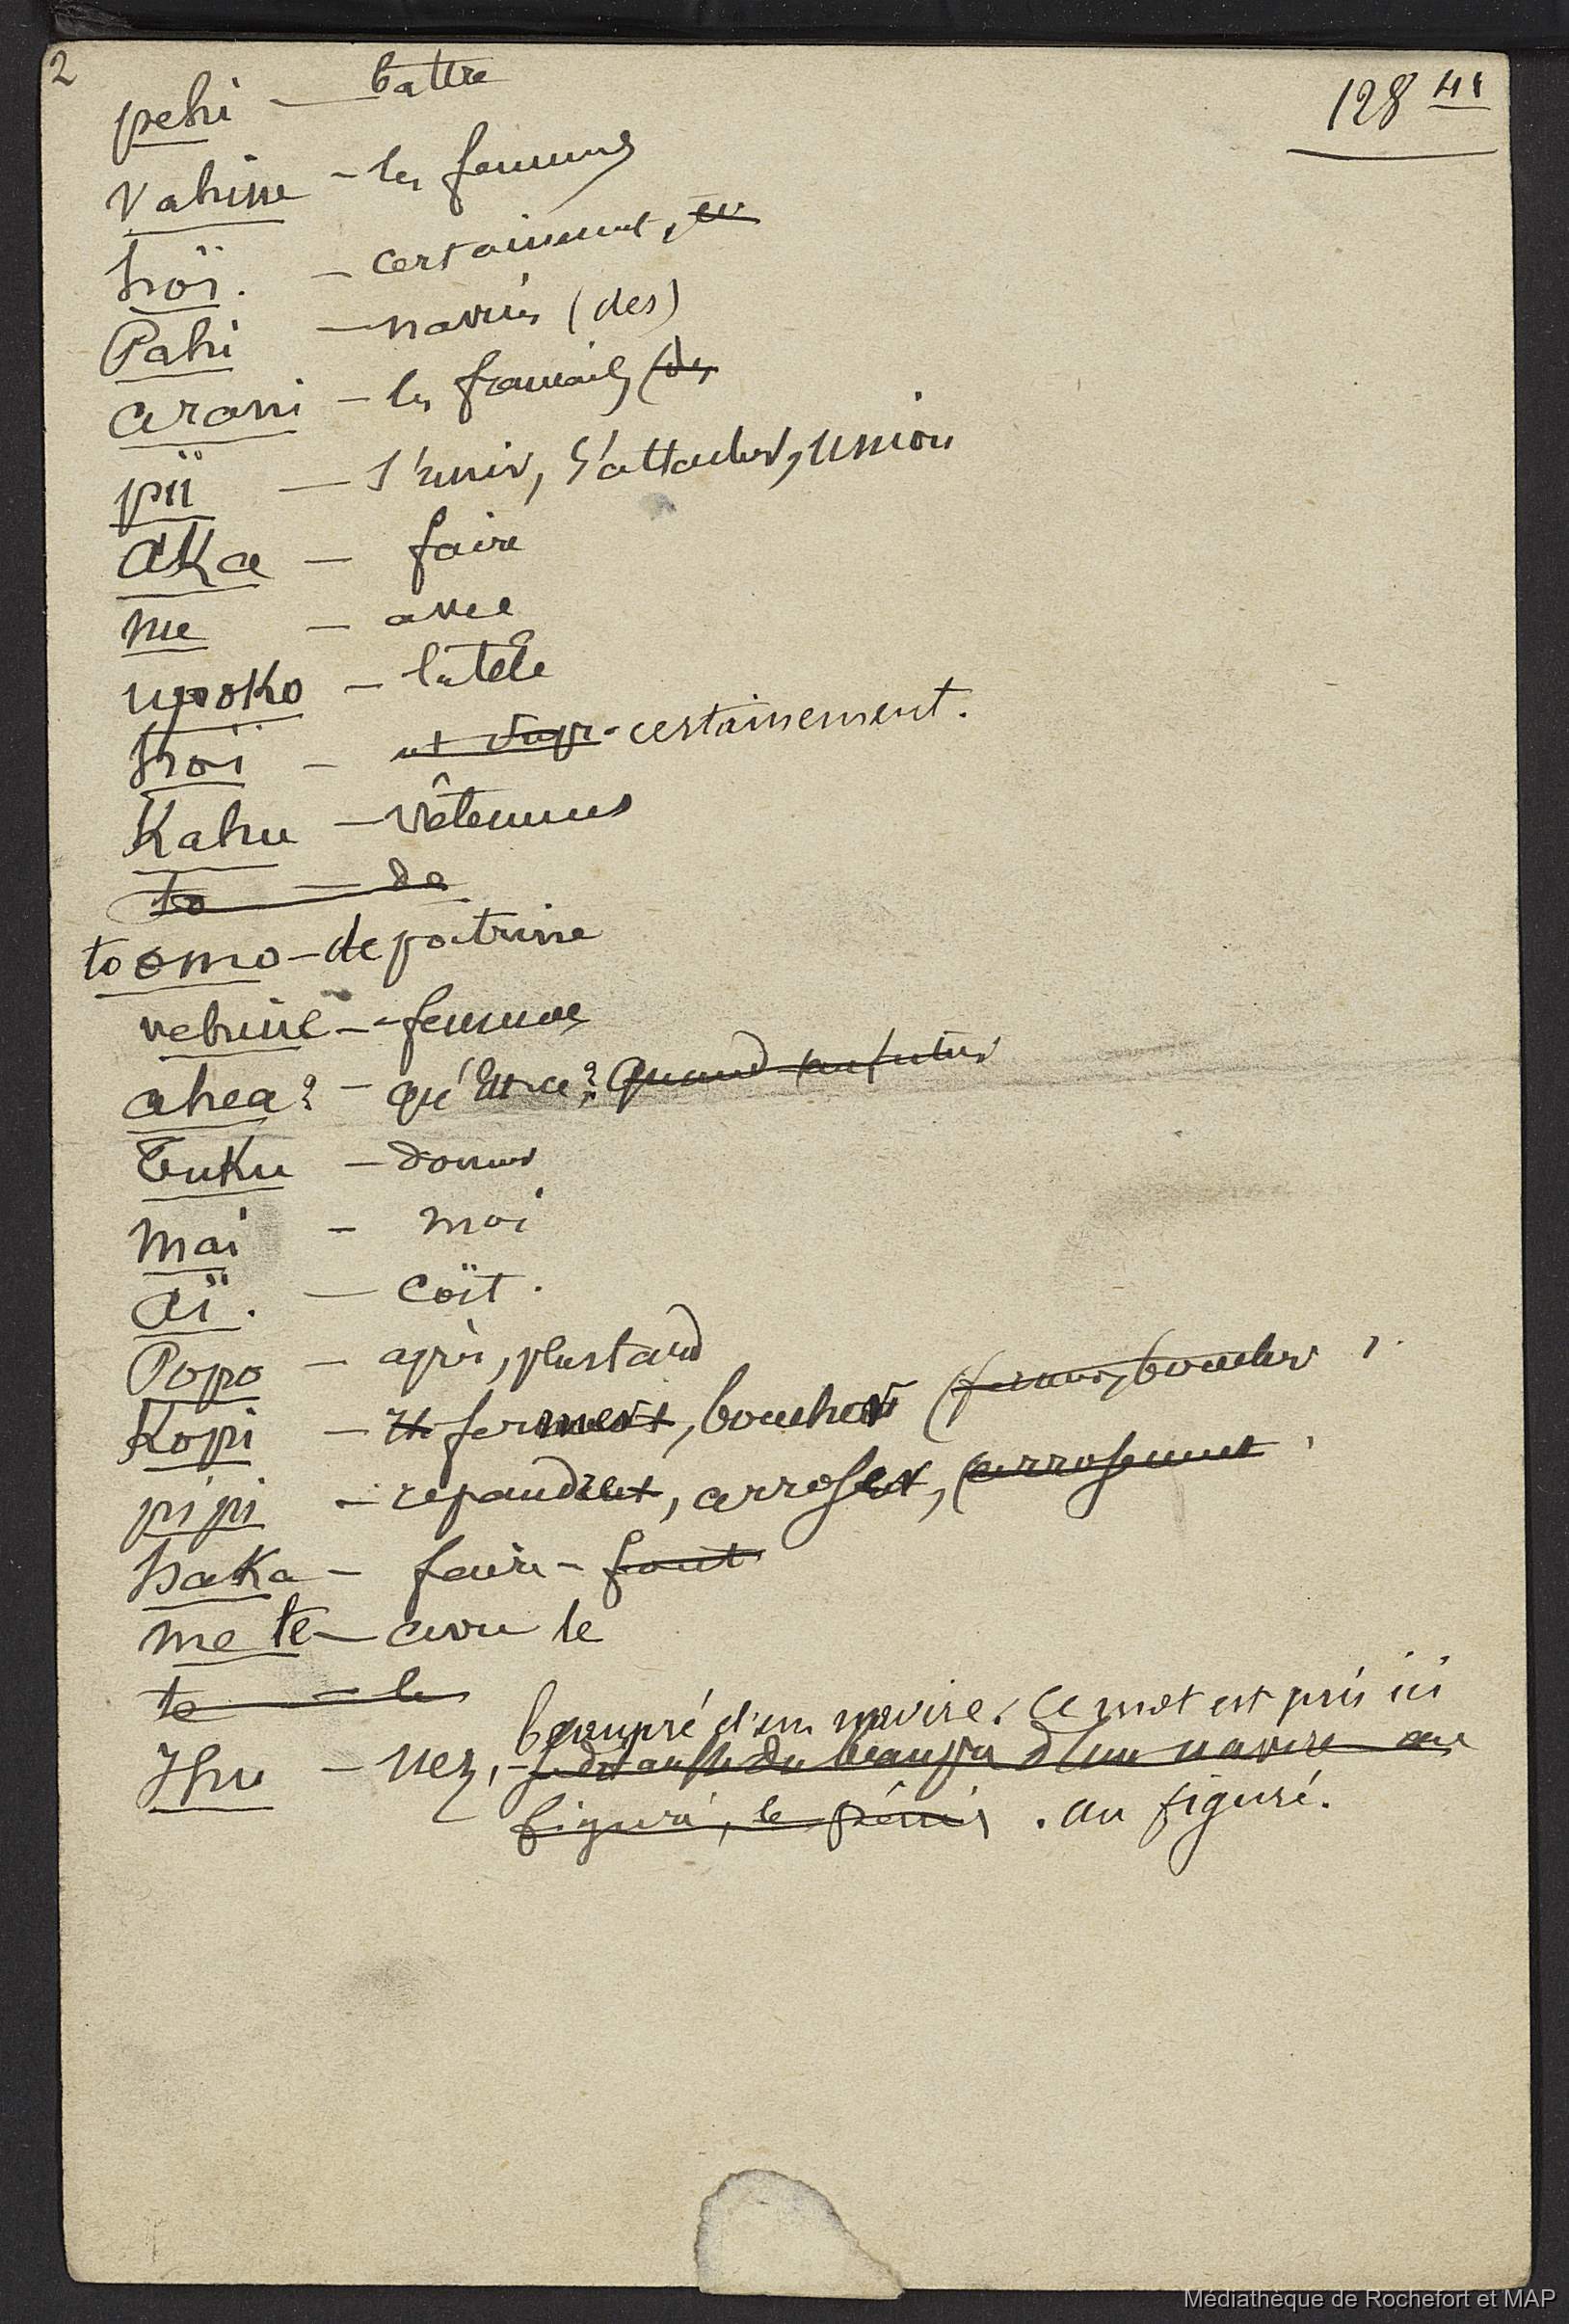 2
128 41
pehi — battre
Vahine — les femmes
hoï. — certainement, en
Pahi — navires (des)
arani — les français (des
pïi — s'unir, s'attacher, union
aka — faire
me — avec
upoko — la tête
hoï — ut supr - certainement.
Kahu — vêtements
to — de
to omo — de poitrine
vehine — femmes
ahea? — qu'est-ce? quand (au futur
Tuku — donner
mai — moi
aï. — coït.
Popo — après, plus tard
Kopi — fermer, boucher (fermer, boucher
pipi — repandre, arroser, (arrosement
haka — faire - font
me te — avec le
te — le
beaupré d'un navire. Ce mot est pris ici
Ihu — nez, - se dit aussi du beaupré d'un navire au
figuré, le pénis . au figuré.
Médiathèque de Rochefort et MAP